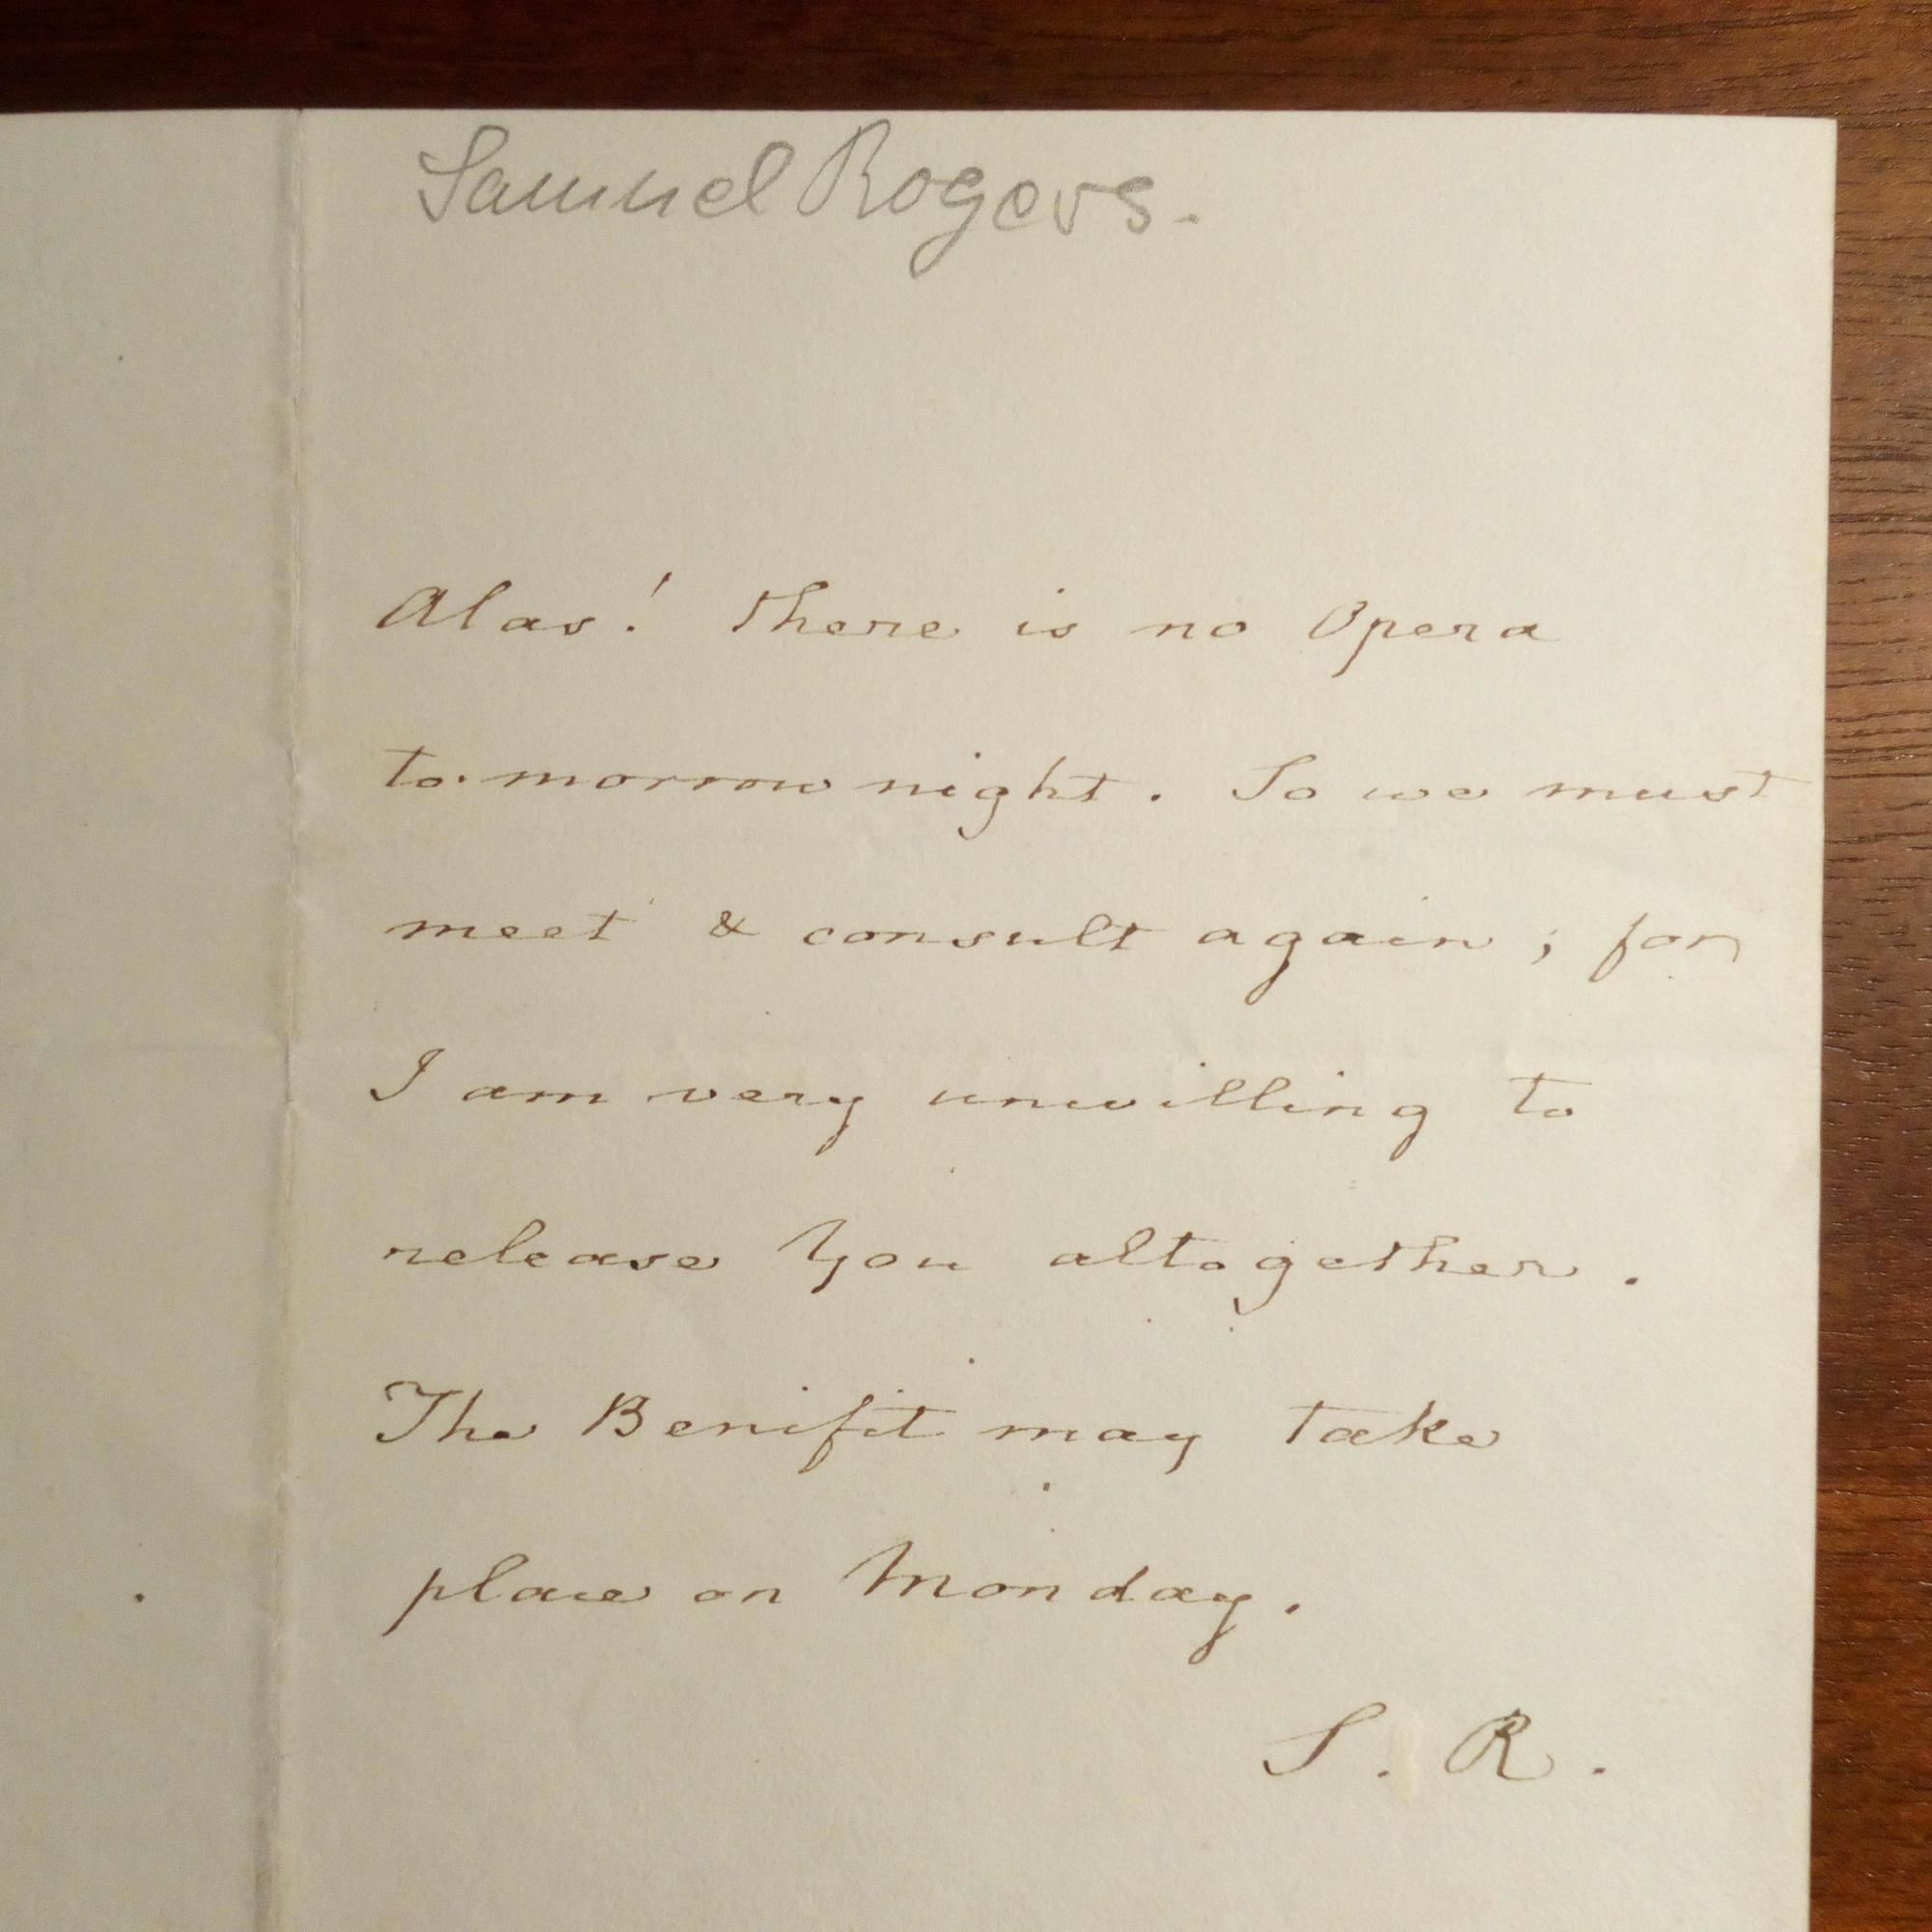 Samuel Rogers.
Alas! there is no Opera
to-morrow night. So we must
meet & consult again; for
I am very unwilling to
release you altogether.
The Benifit may take
place on Monday.
S. R.